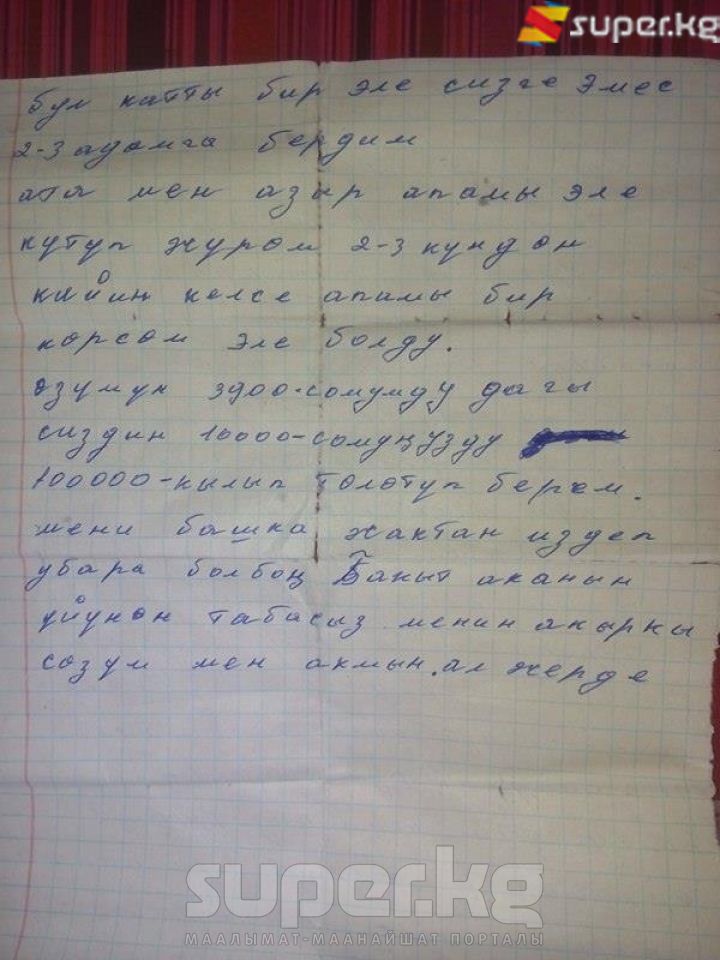 super.kg
бул катты бир эле сизге эмес
2-3 адамга бердим
ата мен азыр апамы эле
кутуп журом 2-3 кундон
кийин келсе апамы бир
корсом эле болду.
озумун 3900-сомумду дагы
сиздин 10000-сомуңузду
100000-кылып толотуп берем.
мени башка жактан издеп
убара болбоң Бакыт аканын
уйунон табасыз менин акыркы
созум мен акмын. ал жерде
super.kg
МААЛЫМАТ-МААНАЙШАТ ПОРТАЛЫ